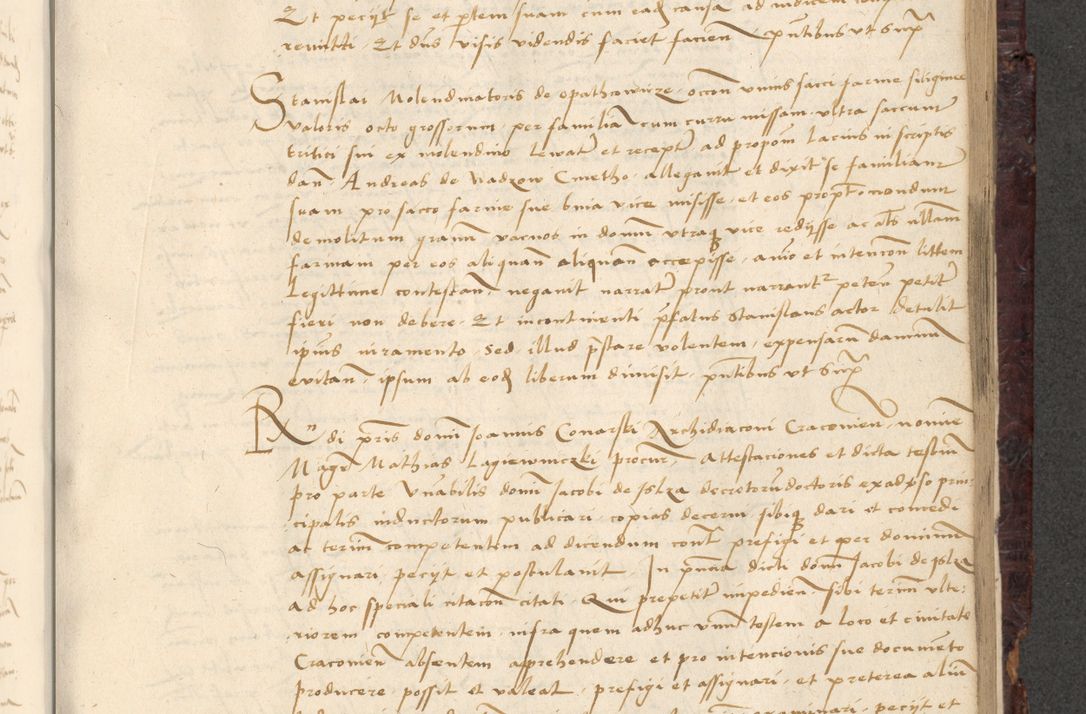 Et pecijt se et ptem suam cum eadem causa ad
remitti Et dns visis videndis faciet facien pntibus vt supra
Stanislai Molendinatoris de opathowicze occon vnius sacci farine siliginee
valoris octo grossorum per familiam cum curru missam vltra saccum
tritici sui ex molendino Lewatur et recepte ad propom lacius in scriptis
dan Andreas de Wadzow Cmetho allegauit et dixit se familiam
suam pro sacco farine sue bina vice misisse et eos propt
demolitum granum vacuos in domum vtraque vice redijsse ac als ullam
farinam per eos aliquam aliquam accepisse, animo et intencion littem
Legittime contestan negauit narrata prout narrantur peten petita
fieri non debere Et incontinenti pfatus Stanislaus actor detulit
ipius iuramento sed illud pstare volentem, expensarum damnum
euitan ipsum ab eodem liberum dimisit pntibus vt supra
Rndi pris domi Joannis Conarski Archidiaconi Cracouien nomine
Magr Mathias Lagiewniczki procur Attestaciones et dicta testium
pro parte Vnabilis domi Jacobi de Islza decretorum doctoris ex aduerso prin
cipalis inductorum publicari copias decerni sibique dari et concedi
ac terim competentem ad dicendum cont prefigi et per dominum
assignari pecijt et postulauit In pncia dicti domi Jacobi de Islza
ad hoc speciali citacon citati Qui prepetitur impedien sibi terim vlte
riorem competentem infra quem adhuc vnum testem a loco et ciuitate
Cracouien absentem aprehendere et pro intencionis sue documento
producere possit et valeat prefigi et assignari et preterea alium
pecijt et